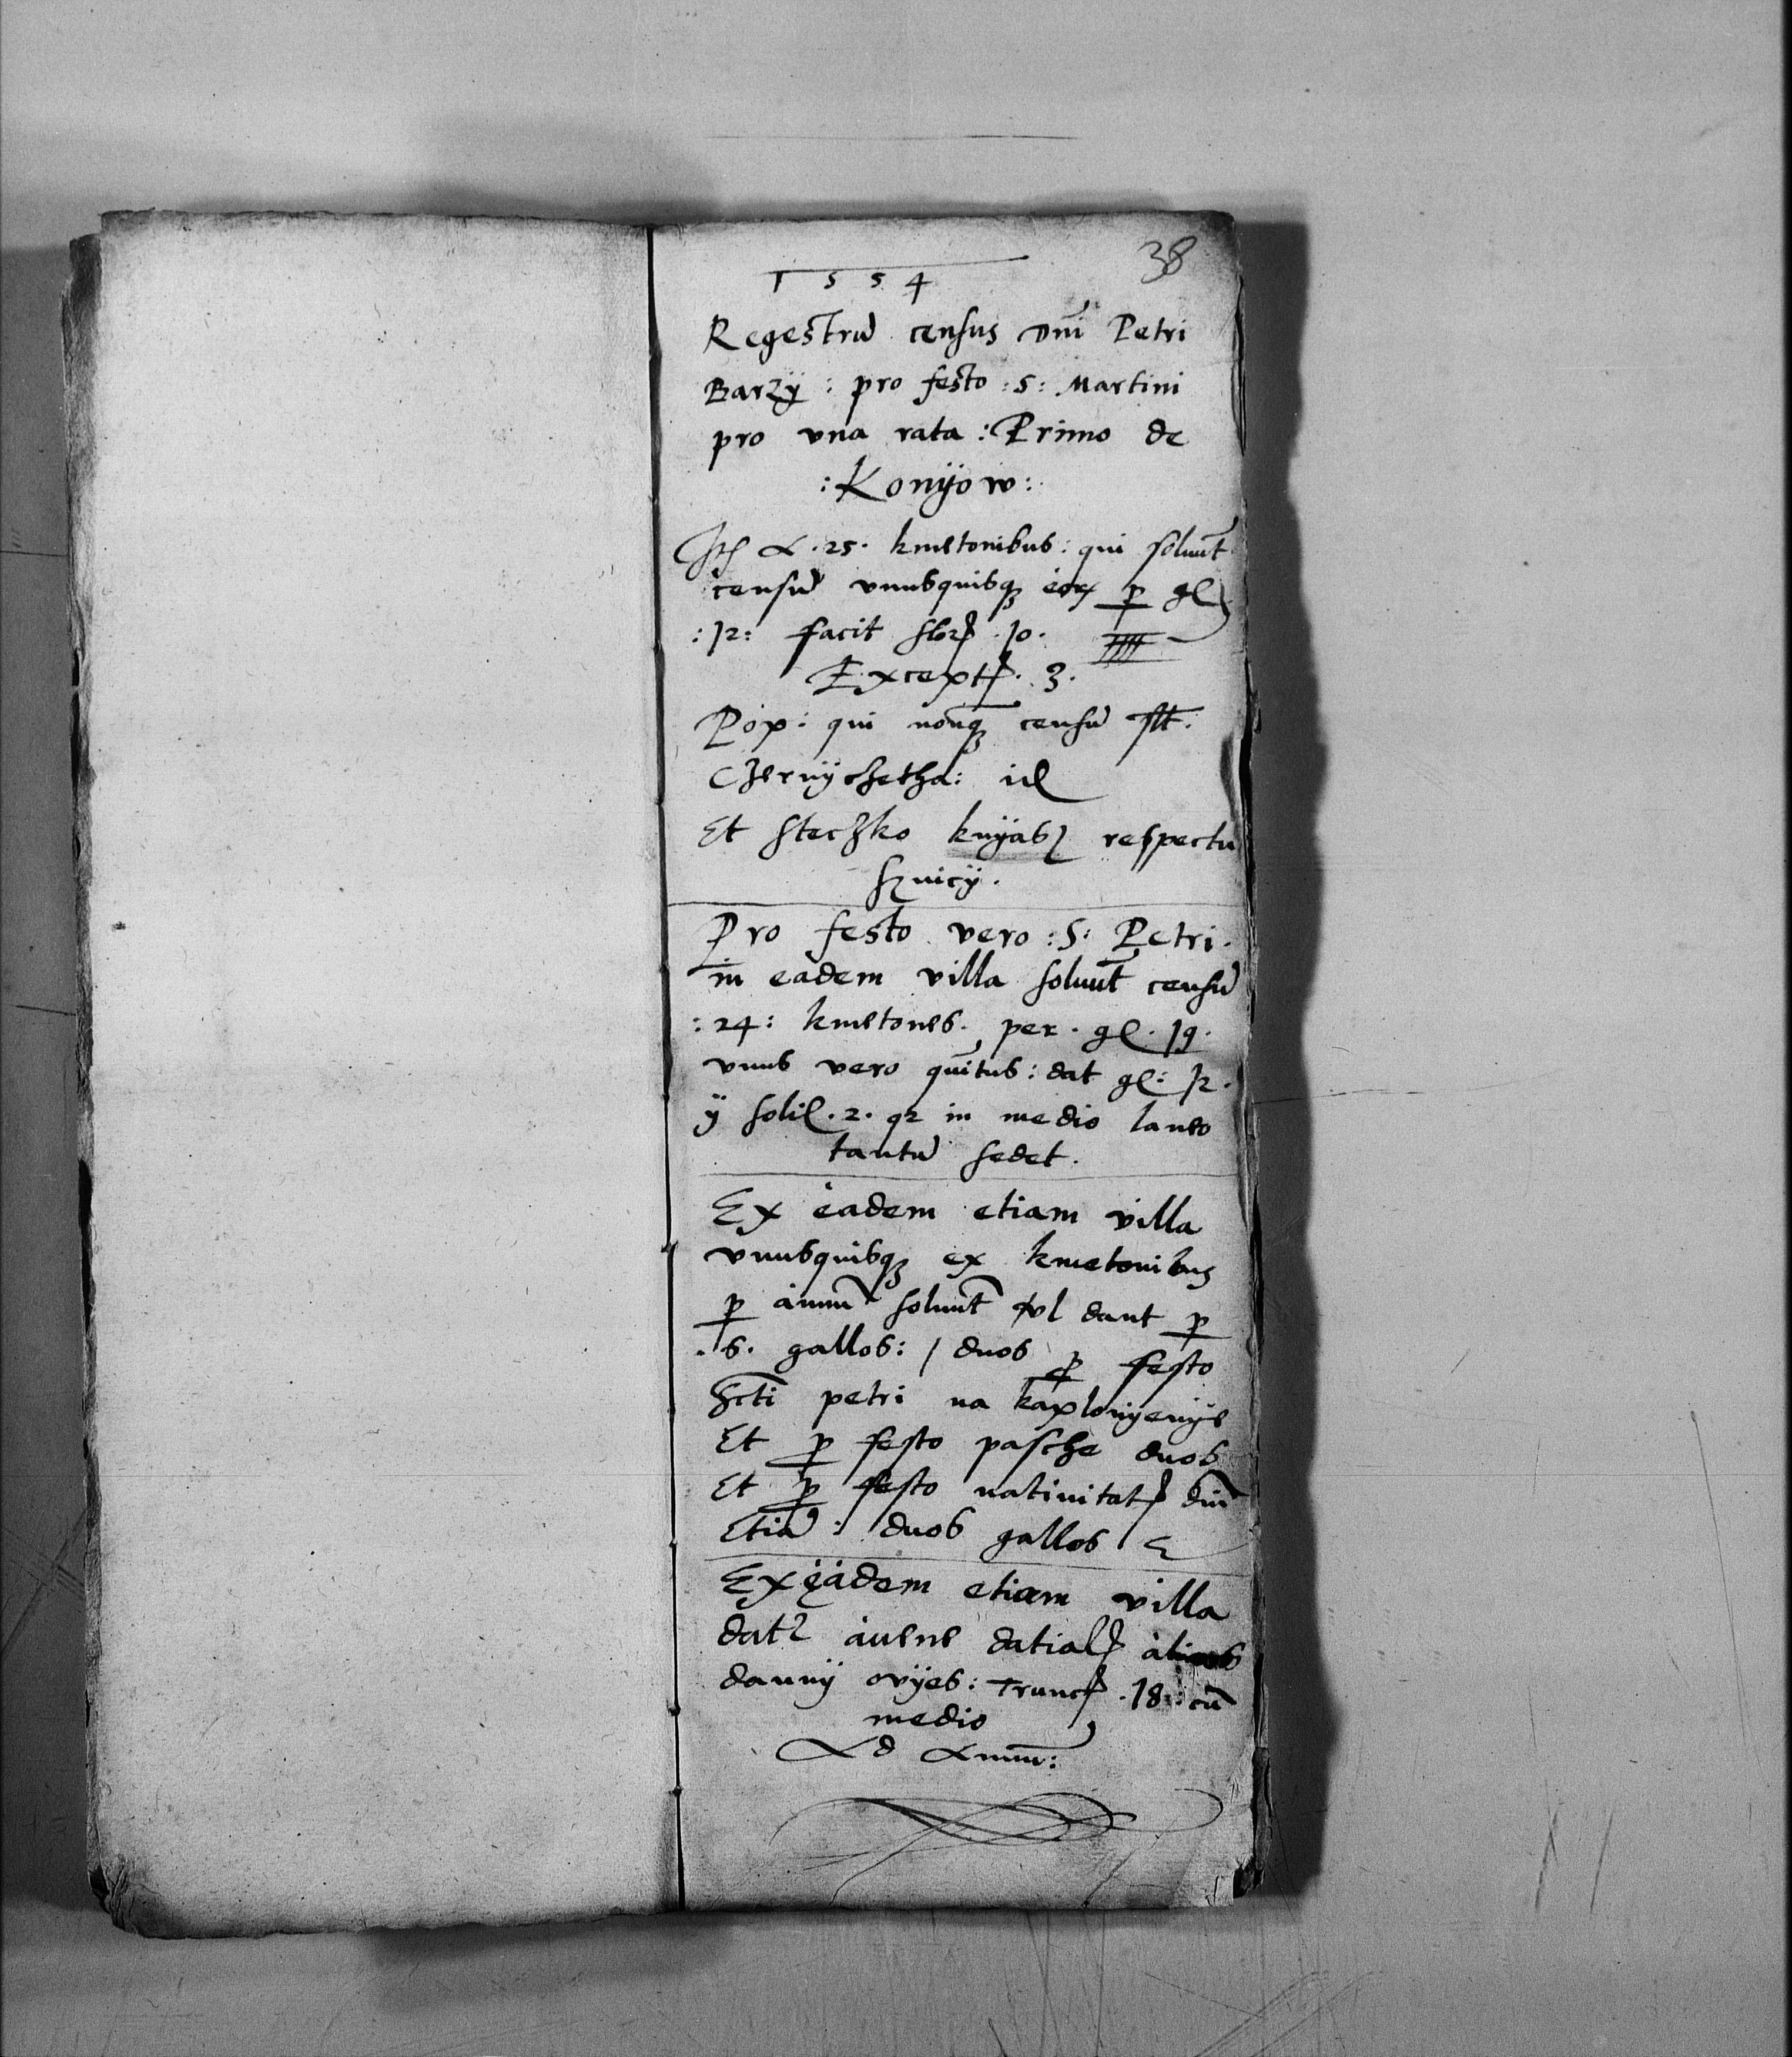 38
1 5 5 4
Regestrũ census dñi Petri
Barzÿ : pro festo : S : Martini
pro vna rata : Primo de
: Konÿow :
a . 25 . kmetonibus : qui soluũt
censũ vnusquisqꝫ eoꝝ ꝑ gꝭ
: 12 : facit flor . 10 .
Except . 3 .
Pop : qui nonqꝫ censũ
Czernÿchetha : id
Et steczko knÿas respectu
Pro festo vero : S : Petri .
in eadem villa soluũt censũ
: 24 : kmetones . per . gꝭ . 19 .
vnus vero quĩtus : dat gꝭ : 12 .
ÿ solid . 2 . qꝛ in medio laneo
tantũ sedet .
Ex eadem etiam villa
vnusquisqꝫ ex kmetonibus
ꝑ annũ soluũt vl dant ꝑ
. 6 . gallos : / duos ꝓ festo
Scti petri na kaplonÿenÿe
Et ꝓ festo pasche duos
Et ꝓ festo natiuitat dñi
Etiã : duos gallos
Ex eadem etiam villa
datꝛ auene datial
dannÿ ovÿes : Trunc . 18 : cũ
medio
Ad Annũ :